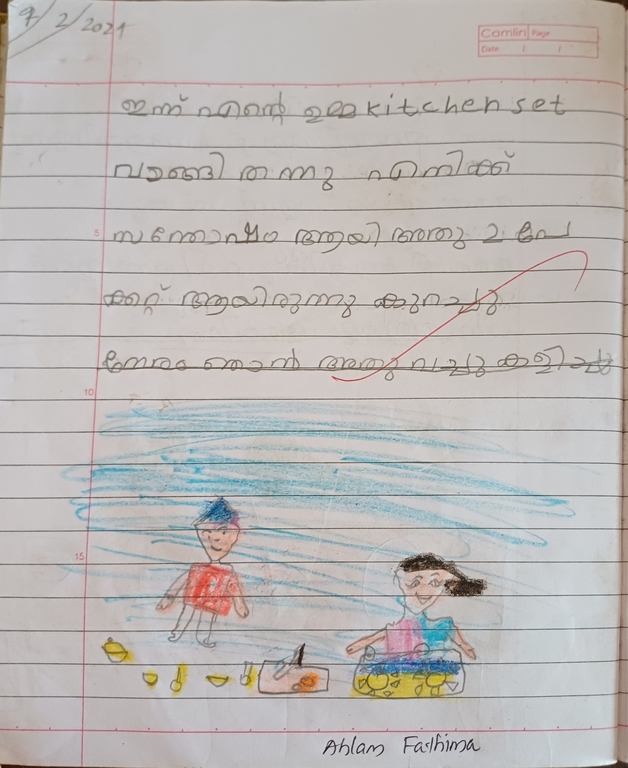 9/2/2024
Camlin Page
Date / /
ഇന്ന് എൻ്റെ ഉമ്മ kitchen set
വാങ്ങി തന്നു എനിക്ക്
5
സന്തോഷം ആയി അതു 2 പേ
ക്കറ്റ് ആയിരുന്നു കുറച്ചു
നേരം ഞാൻ അതു വച്ചു കളിച്ചു
10
15
Ahlam Fathima